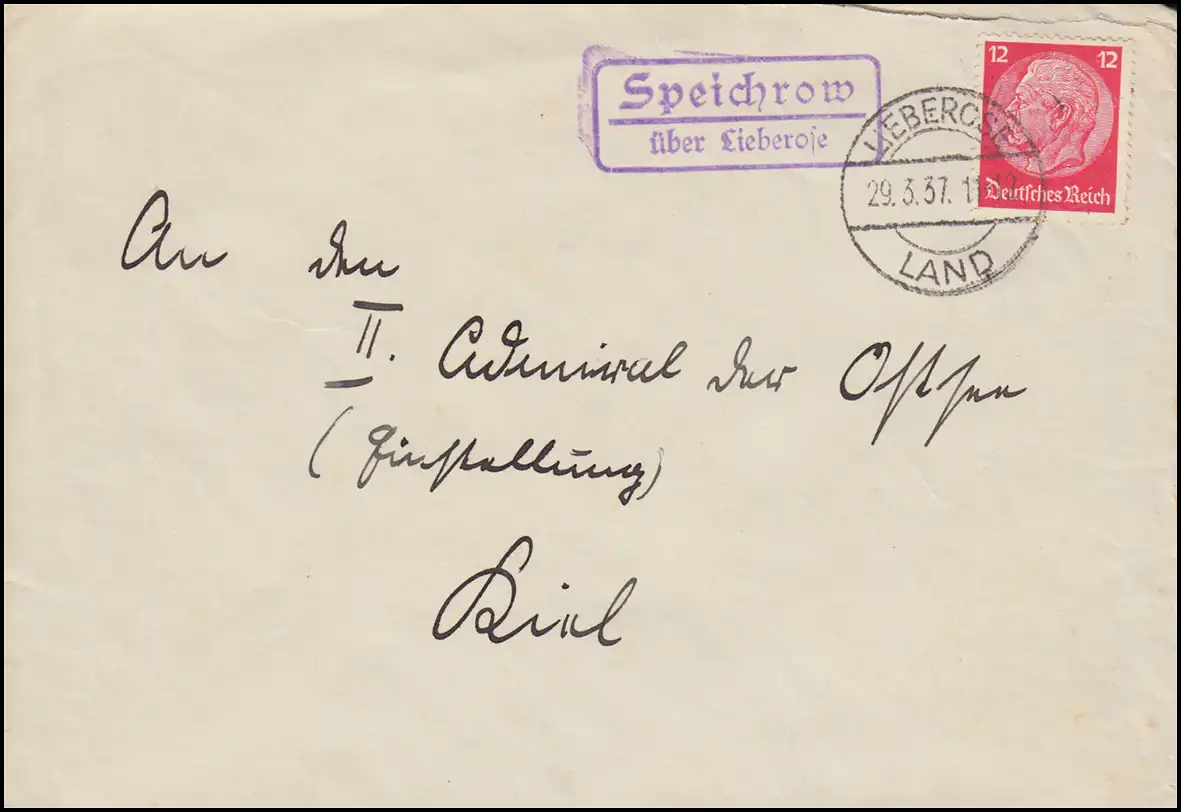 Speichrow
über Lieberose
12 12
Deutsches Reich
LIEBEROSE
29.3.37. 11-12
LAND
An den
II. Admiral der Ostsee
(Einstellung)
Kiel